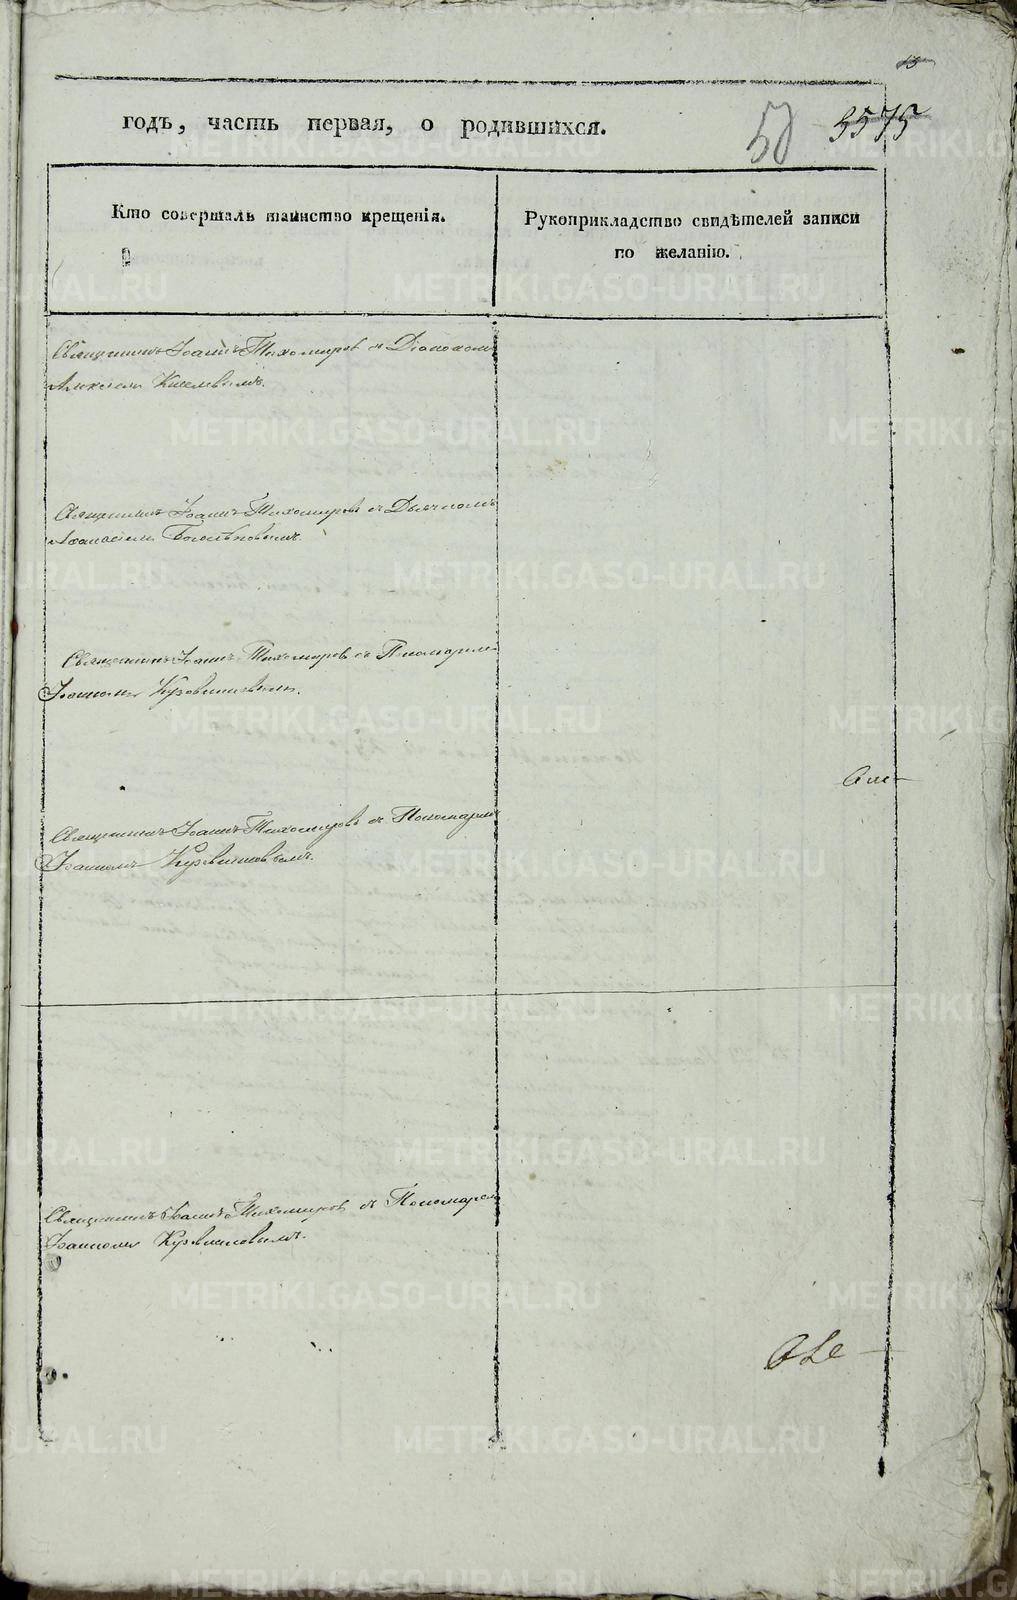 годъ, часть первая, о родившихся.
50
Кто совершалъ таинство крещенія.
Рукоприкладство свидѣтелей записи
по желанію.
Священникъ Іоаннъ Тихомировъ съ Діакономъ
Алексіемъ
Священникъ Іоаннъ Тихомировъ съ Дьячкомъ
Аѳанасіемъ
Священникъ Іоаннъ Тихомировъ съ Пономаремъ
Іоанномъ
Священникъ Іоаннъ Тихомировъ съ Пономаремъ
Іоанномъ
Священникъ Іоаннъ Тихомировъ съ Пономаремъ
Іоанномъ
METRIKI.GASO-URAL.RU